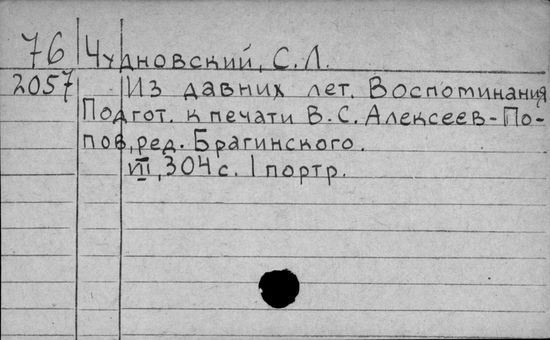 76 Чудновский, С. Л.
2057 Из давних лет. Воспоминания
Подгот. к печати В. С. Алексеев-По-
пов, ред. Брагинского.
VII, 304 с. 1 портр.